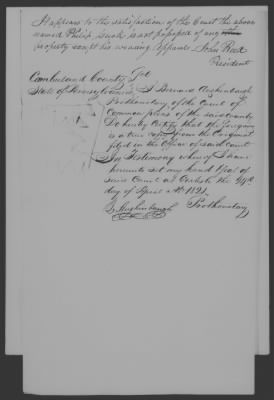 It appears to the satisfaction of the Court the above
named Philip Jusk is not possessed of any
property except his wearing apparel John Reed
President
Cumberland County Sct
State of Pennsylvania I Bernard Aughinbaugh
Prothonotary of the Court of
Common pleas of the said County
Do hereby Certify that the foregoing
is a true copy from the Original
filed in the Office of said Court
In Testimony whereof I have
hereunto set my hand & seal of
said Court at Carlisle the 24th
day of April AD 1821
B Aughinbaugh Prothonotary